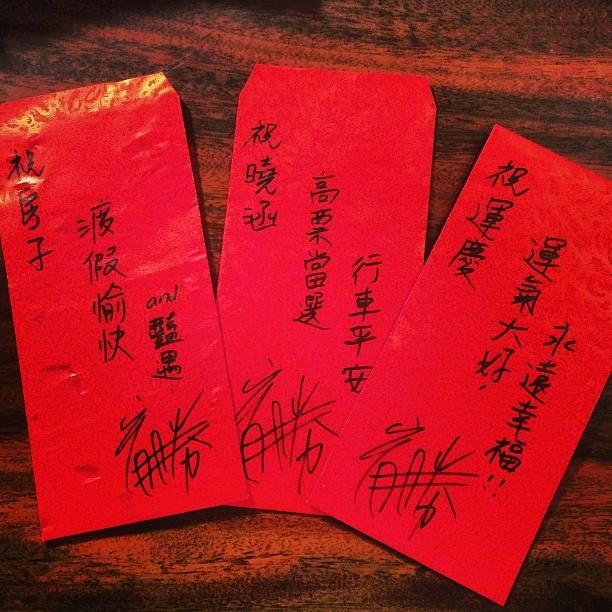 祝房子
渡假愉快
and 豔遇
祝曉涵
高票當選
行車平安
祝運慶
運氣大好!
永遠幸福!!